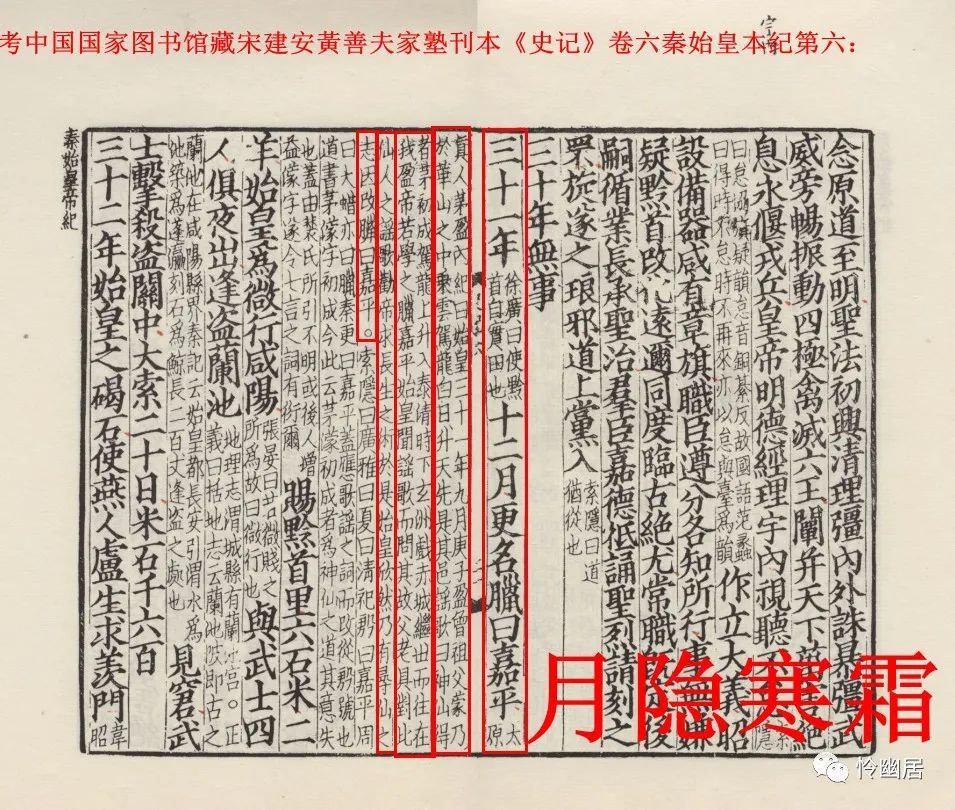 考中国国家图书馆藏宋建安黃善夫家塾刊本《史记》卷六秦始皇本纪第六：
念原道至明聖法初興清理疆内外誅暴彊武
威旁暢振動四極禽滅六王闡并天下
息永偃戎兵皇帝明德經理宇内視聽
曰怠協旗疑韻怠音銅綦反故國語范蠡
曰得時不怠時不再來亦以怠與臺為韻
作立大義昭
設備器咸有章旗職臣遵分各知所行事無嫌
疑黔首改化遠邇同度臨古絶尤常職既定後
嗣循業長承聖治羣臣嘉德祇誦聖烈請刻之
罘旋遂之琅邪道上黨入
索隱曰道
猶從也
三十年無事
三十一年
徐廣曰使黔
首自實田也
十二月更名臘曰嘉平
太
原
真人茅盈内紀曰始皇三十一年九月庚子盈曾祖父濛乃
於華山之中乘雲駕龍白日升天先是其邑謠歌曰神仙得
者茅初成駕龍上升入泰清時下玄洲戲赤城繼世而往在
我盈帝若學之臘嘉平始皇聞謠歌而問其故父老具對此
仙人之謠歌勸帝求長生之術於是始皇欣然乃有尋仙之
志因改臘曰嘉平。索隱曰廣雅曰夏曰清祀殷曰嘉平周
曰大蜡亦曰臘秦更曰嘉平蓋應歌謠之詞而改從殷號也
道書茅濛字初成今此云茅濛初成者為神仙之道其意失
也蓋由裴氏所引不明或後人增
益濛字遂令七言之詞有衍爾
賜黔首里六石米二
羊始皇為微行咸陽
張晏曰若微賤之
所為故曰微行也
與武士四
人俱夜出逢盗蘭池
地理志渭城縣有蘭池宮。正
義曰括地志云蘭池陂即古之
蘭池在咸陽縣界秦記云始皇都長安引渭水為
池築為蓬瀛刻石為鯨長二百丈逢盗之處也
見窘武
士擊殺盗關中大索二十日米石千六百
三十二年始皇之碣石使燕人盧生求羡門
韋
昭
秦始皇帝紀
月隐寒霜
怜幽居